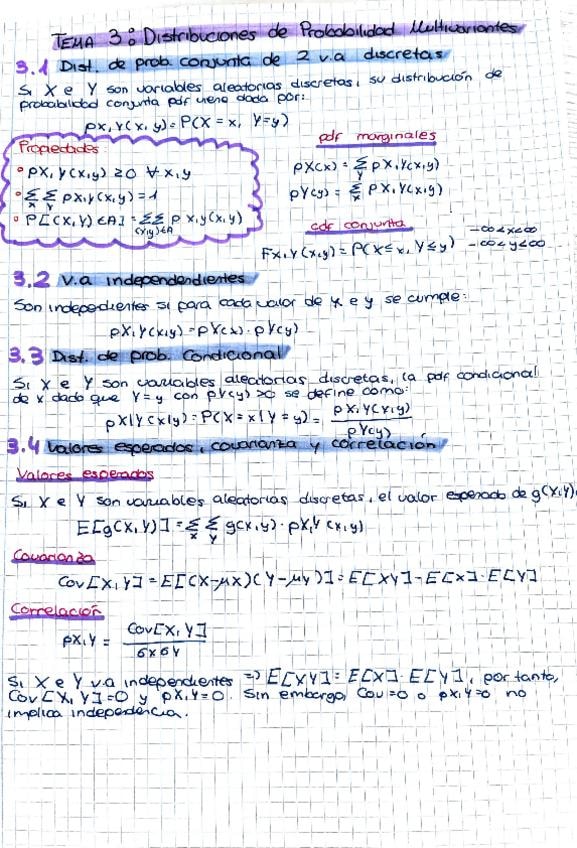 TEMA 3: Distribuciones de Probabilidad Multivariantes
3.1 Dist. de prob. conjunta de 2 v.a discretas
Si X e Y son variables aleatorias discretas, su distribución de
probabilidad conjunta pdf viene dada por:
pX,Y(x,y) = P(X = x, Y = y)
Propiedades:
• pX,Y(x,y) ≥ 0 ∀ x,y
• Σx Σy pX,Y(x,y) = 1
• P[(X,Y) ∈ A] = ΣΣ(x,y)∈A p x,y(x,y)
pdf marginales
pX(x) = Σy pX,Y(x,y)
pY(y) = Σx pX,Y(x,y)
cdf conjunta
FX,Y(x,y) = P(X ≤ x, Y ≤ y) -∞<x<∞
-∞<y<∞
3.2 v.a independendientes
Son independientes si para cada valor de x e y se cumple:
pX,Y(x,y) = pX(x) · pY(y)
3.3 Dist. de prob. Condicional
Si X e Y son variables aleatorias discretas, la pdf condicional
de x dado que Y=y con pY(y) >0 se define como:
pX|Y(x|y) = P(X = x | Y = y) = pX,Y(x,y) / pY(y)
3.4 Valores esperados, covarianza y correlación
Valores esperados
Si X e Y son variables aleatorias discretas, el valor esperado de g(X,Y)
E[g(X,Y)] = Σx Σy g(x,y) · pX,Y(x,y)
Covarianza
Cov[X,Y] = E[(X-μX)(Y-μY)] = E[XY] - E[X] · E[Y]
Correlación
ρX,Y = Cov[X,Y] / σXσY
Si X e Y v.a independientes => E[XY] = E[X] · E[Y], por tanto,
Cov[X,Y]=0 y ρX,Y=0. Sin embargo, Cov=0 o ρx,y=0 no
implica independencia.